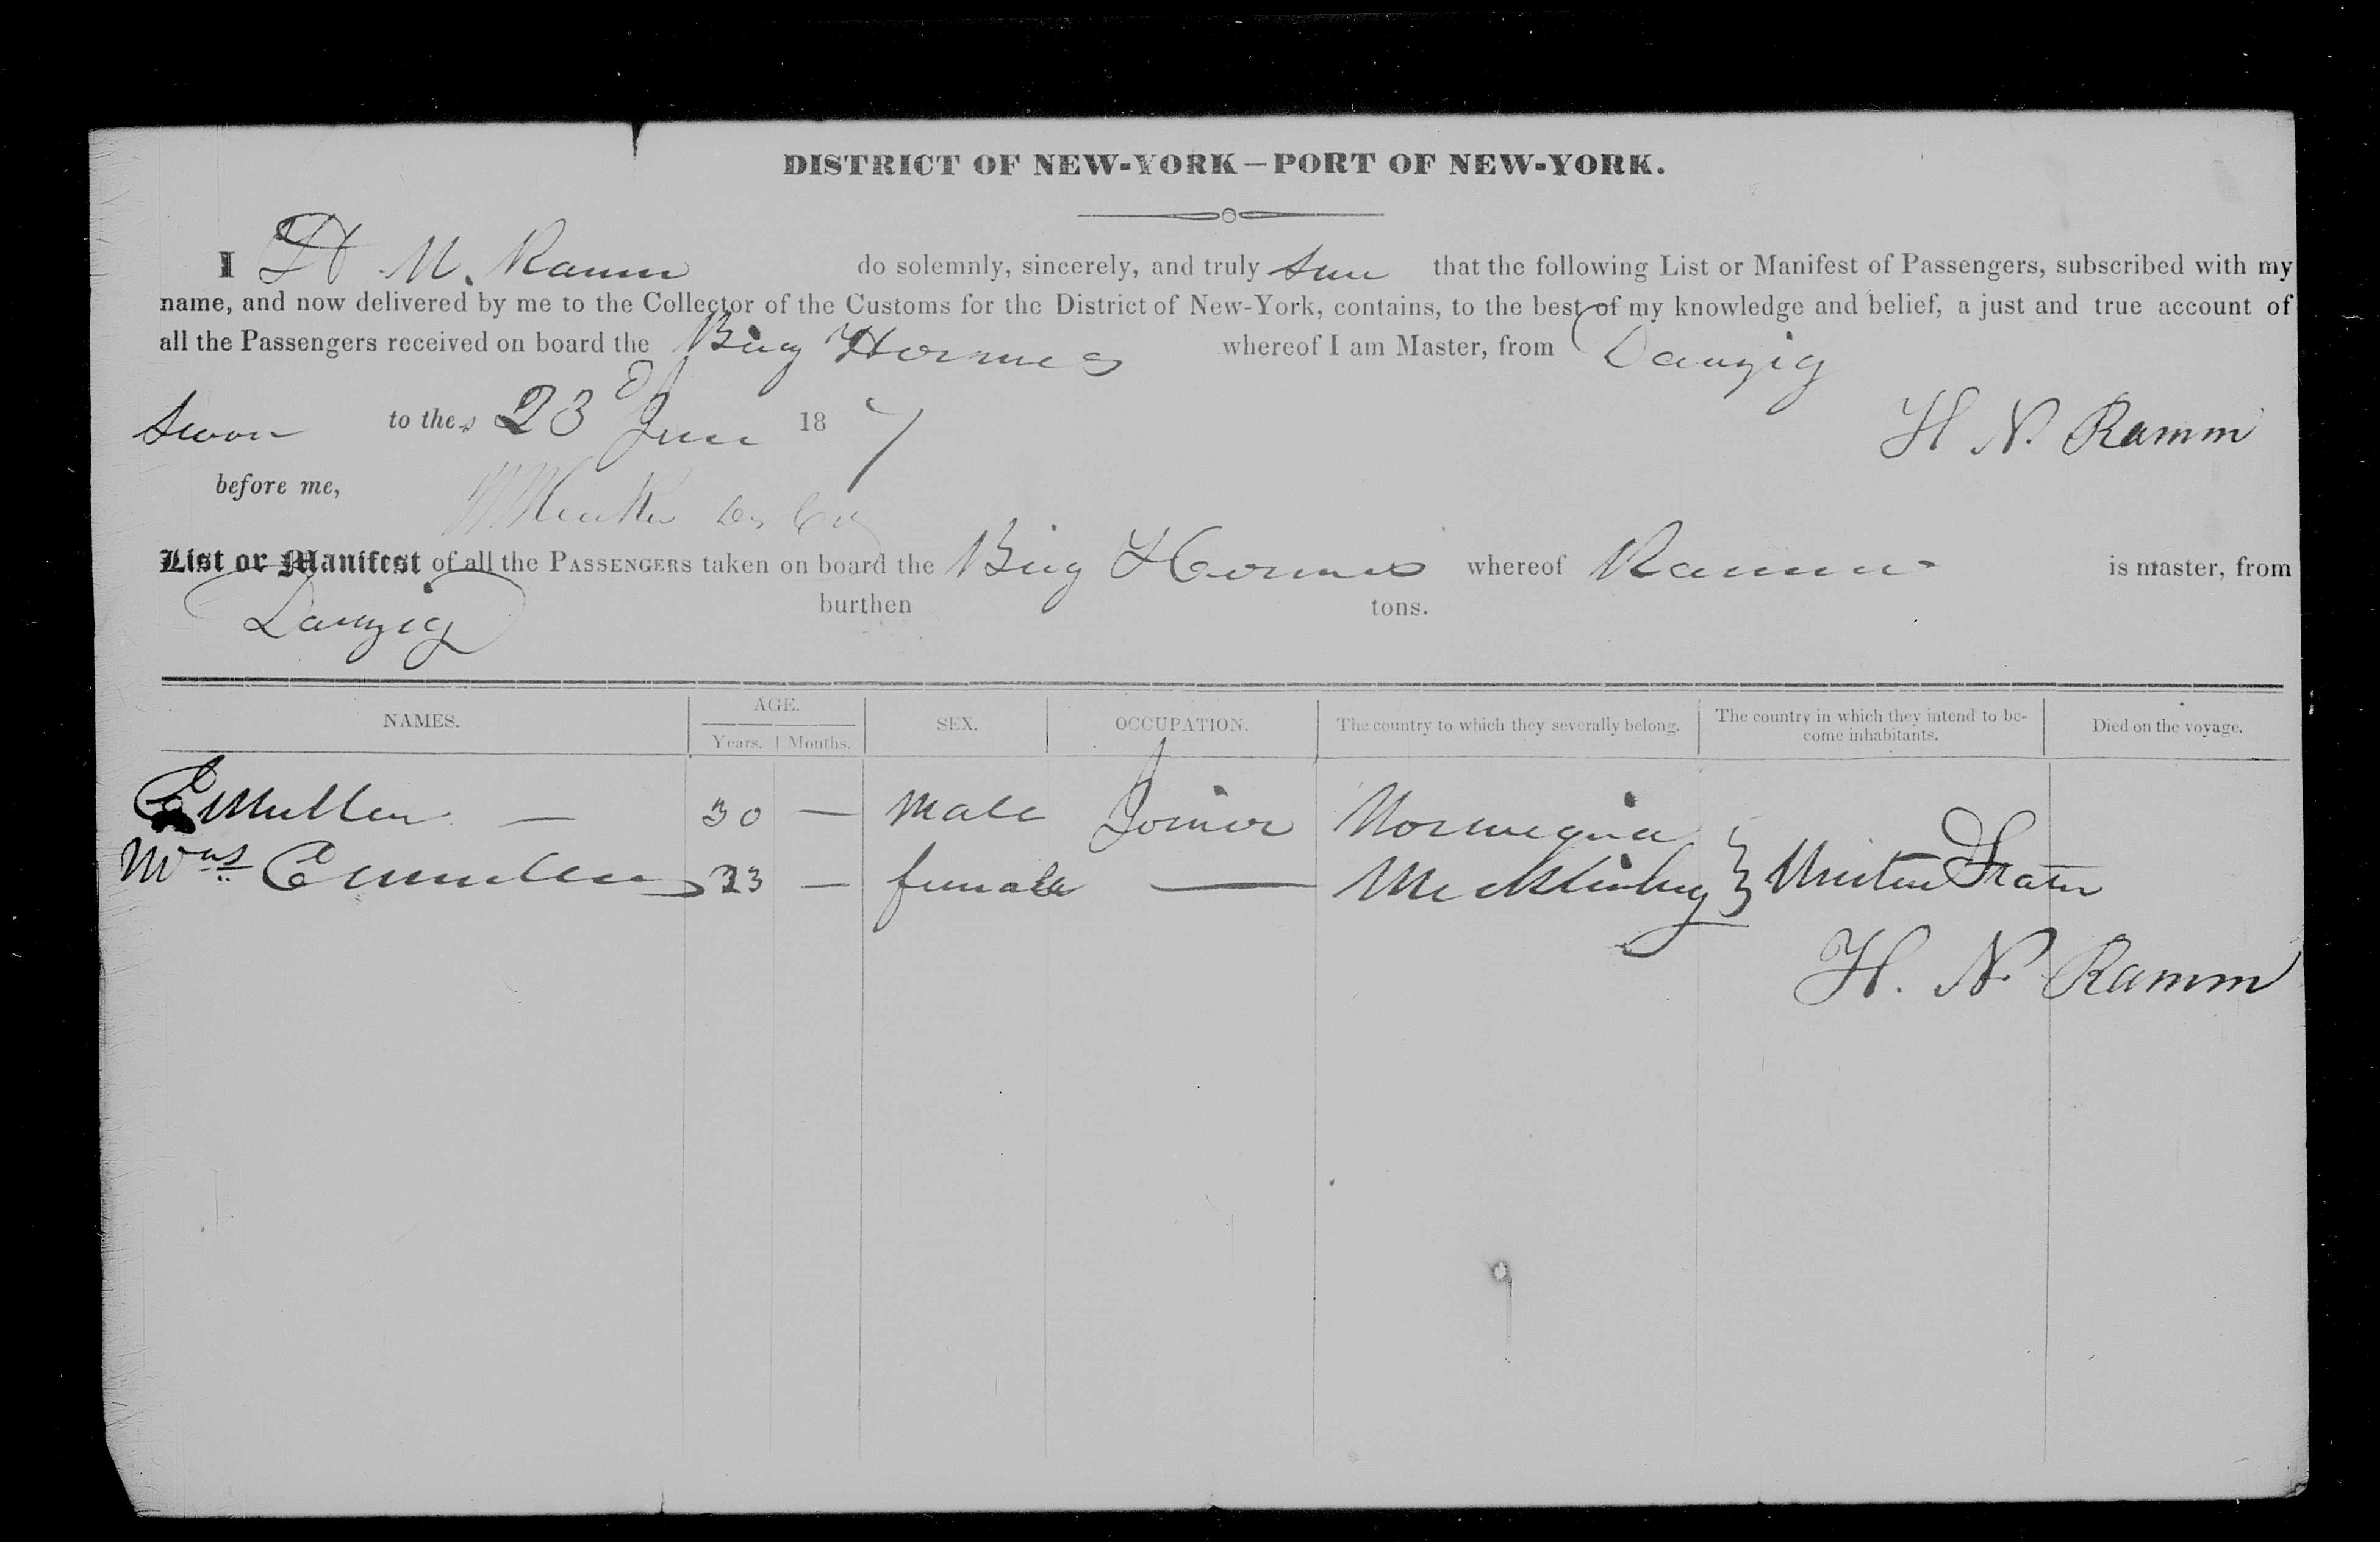 DISTRICT OF NEW-YORK—PORT OF NEW-YORK.
I H N. Ramm do solemnly, sincerely, and truly that the following List or Manifest of Passengers, subscribed with my
name, and now delivered by me to the Collector of the Customs for the District of New-York, contains, to the best of my knowledge and belief, a just and true account of
all the Passengers received on board the Brig Hermes whereof I am Master, from Danzig
Sworn to the 23d June 18 7 H N. Ramm
before me,
List or Manifest of all the PASSENGERS taken on board the Brig Hermes whereof Ramm is master, from
Danzig burthen tons.
NAMES. AGE. Years. Months. SEX. OCCUPATION. The country to which they severally belong. The country in which they intend to become inhabitants. Died on the voyage.
C Muller — 30 — Male Joiner Norwegian
Mrs C Muller 23 — female — Mecklinburg United States
H. N. Ramm